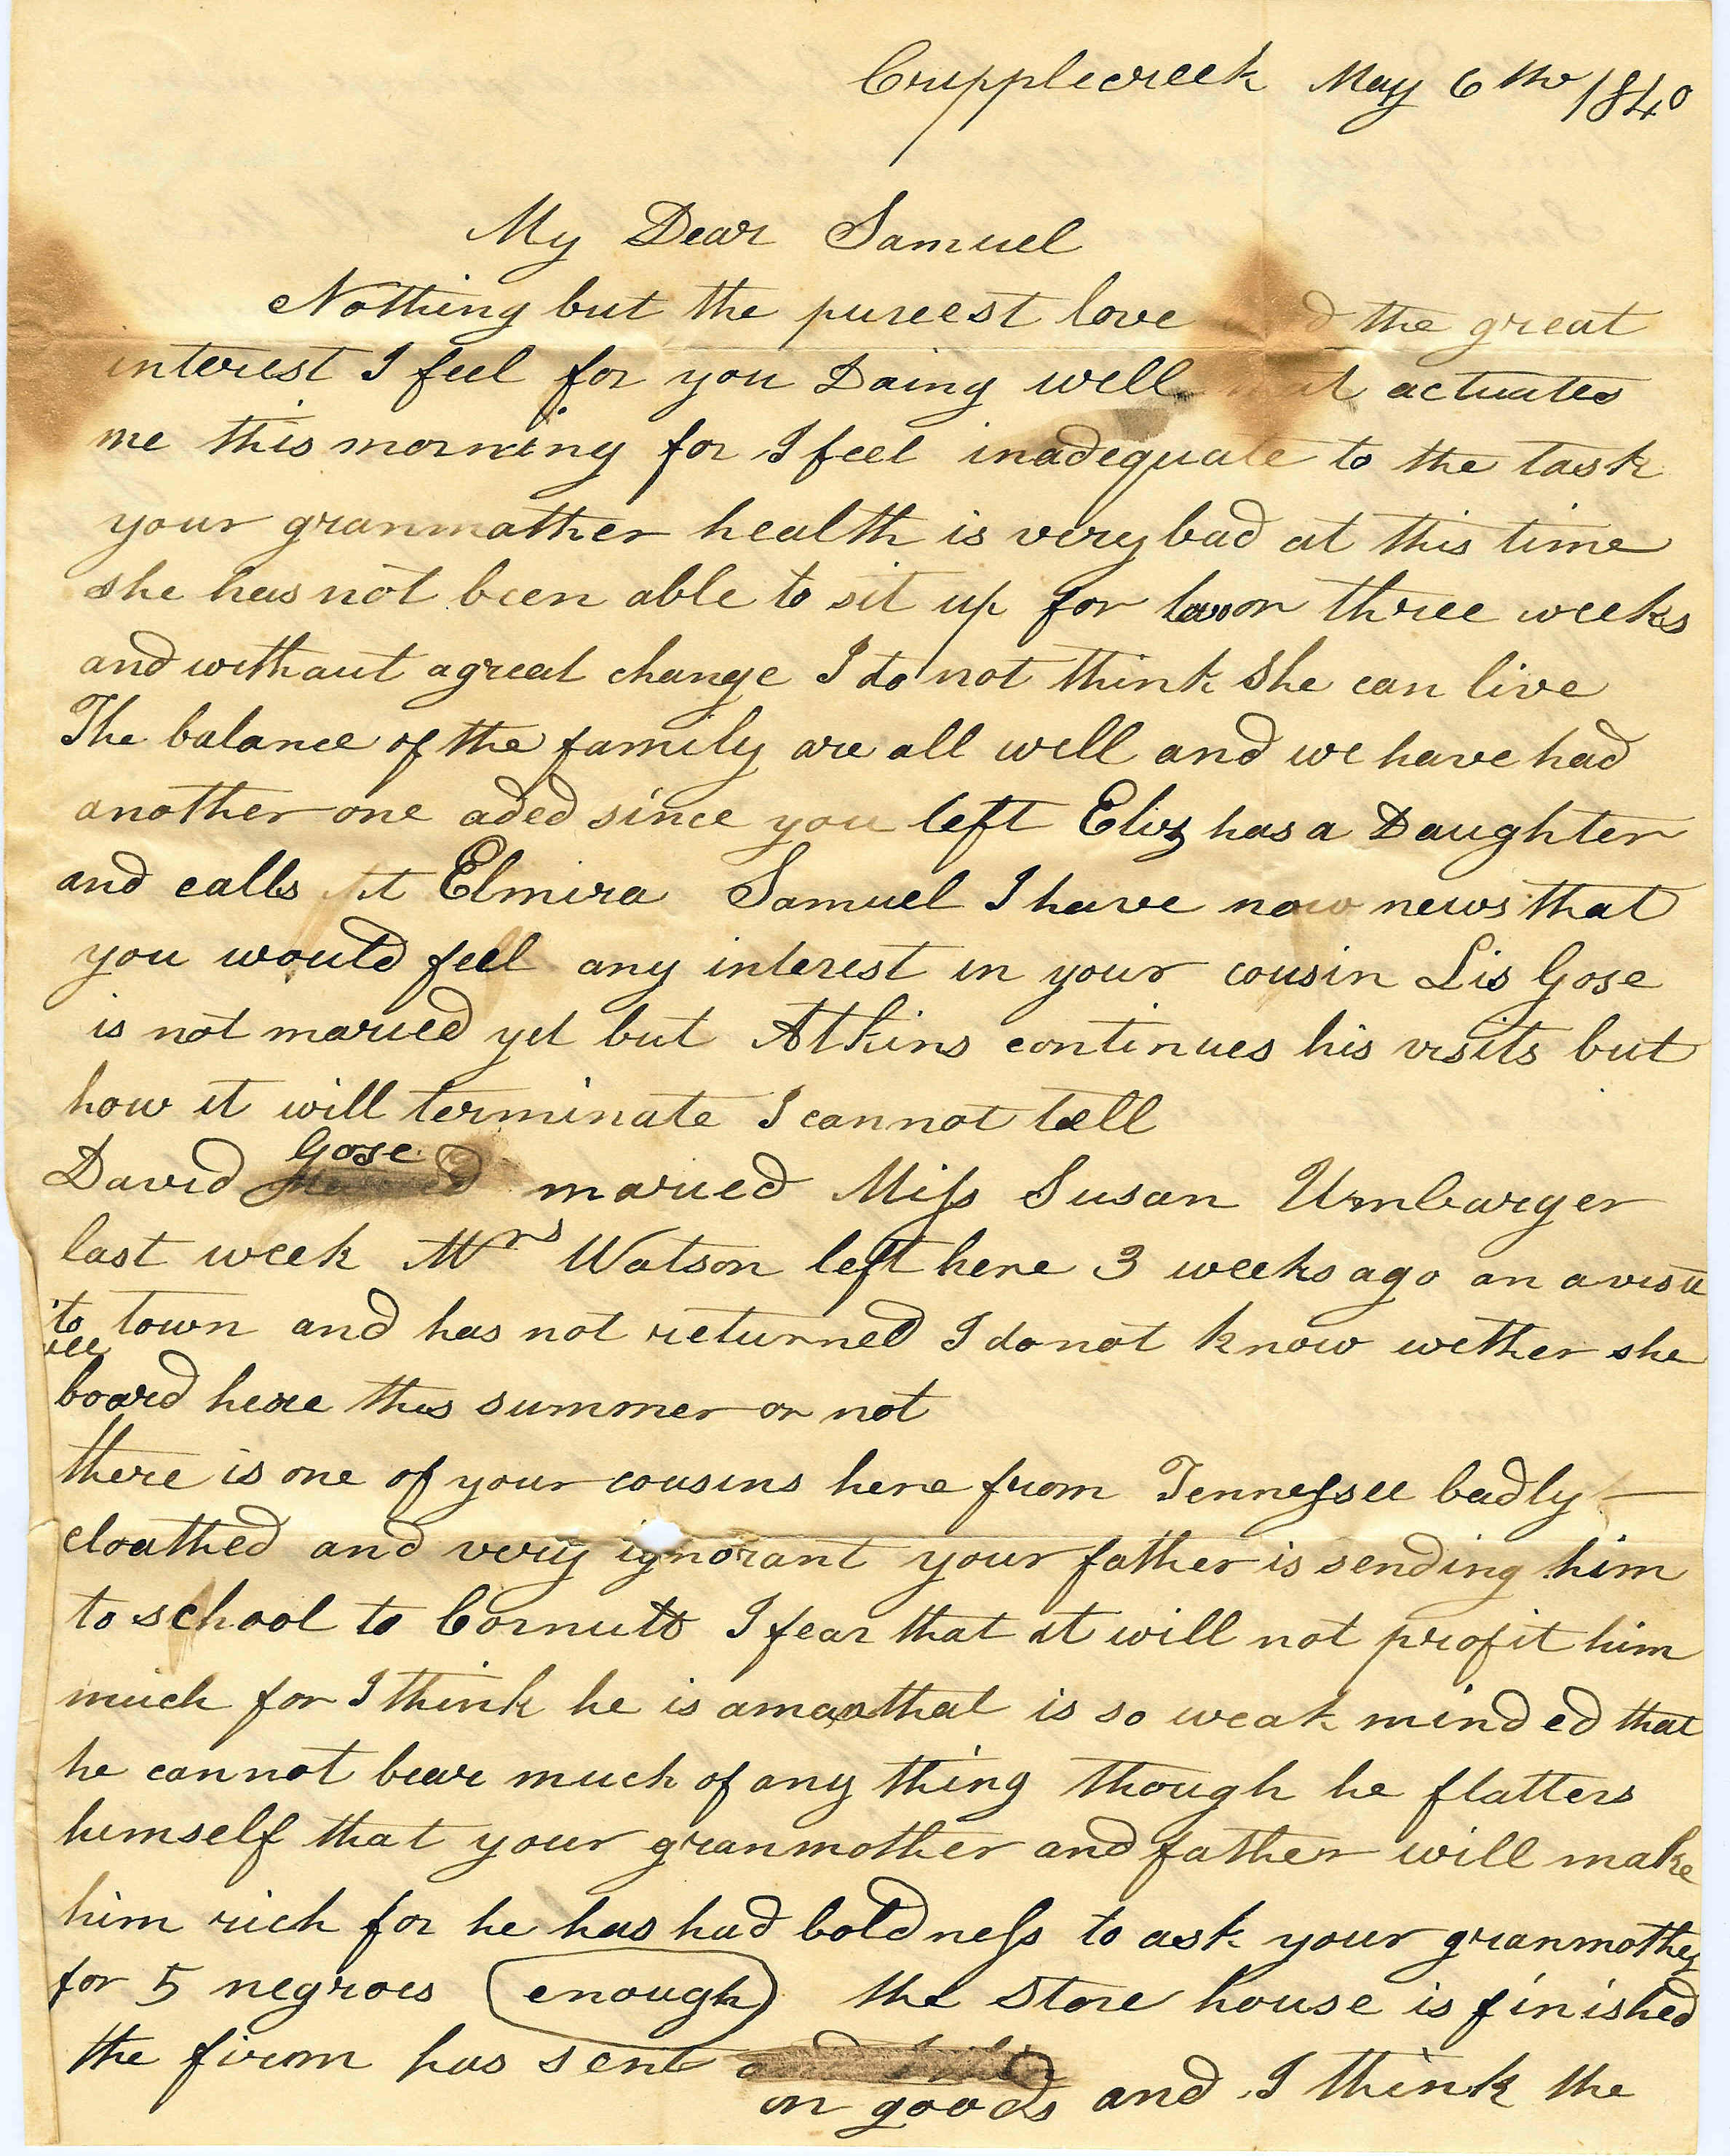 Cripplecreek May 6th 1840
My Dear Samuel
Nothing but the pureest love and the great
interest I feel for you Doing well actuates
me this morning for I feel inadequate to the task
your granmother health is very bad at this time
she has not been able to sit up for two or three weeks
and without a great change I do not think she can live
The balance of the family are all well and we have had
another one aded since you left Eliz has a Daughter
and calls it Elmira Samuel I have now news that
you would feel any interest in your cousin Lis Gose
is not maried yet but Atkins continues his visits but
how it will terminate I cannot tell
David Gose maried Miss Susan Umbarger
last week Mrs Watson left here 3 weeks ago on a visit
to town and has not returned I do not know wether she
will
board here this summer or not
there is one of your cousins here from Tennessee badly
cloathed and very ignorant your father is sending him
to school to Cornutt I fear that it will not profit him
much for I think he is a man that is so weak minded that
he cannot bear much of any thing though he flatters
himself that your granmother and father will make
him rich for he has had boldness to ask your granmother
for 5 negroes (enough) the store house is finished
the firm has sent
on goods and I think the